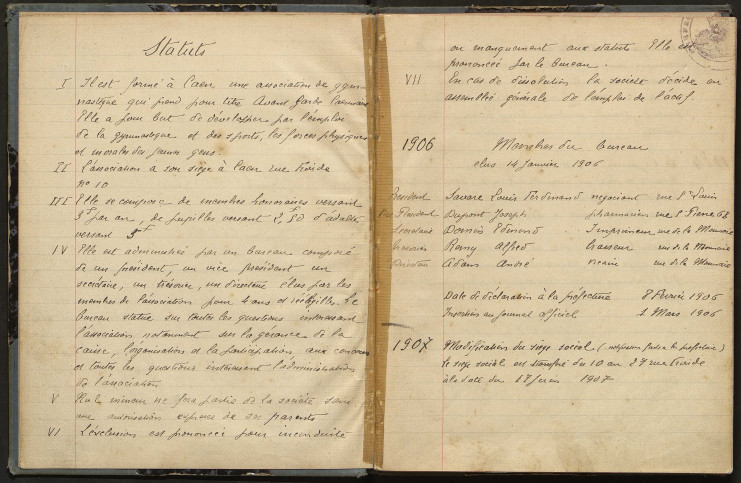 Statuts
I Il est formé à Caen une association de gym-
nastique qui prend pour titre Avant Garde Caennaise
Elle a pour but de développer par l'emploi
de la gymnastique et des sports, les forces physiques
et morales des jeunes gens.
II L'association a son siège à Caen rue Froide
no 10
III Elle se compose de membres honoraires versant
par an, de pupilles versant d'adultes
versant
IV Elle est administrée par un bureau composé
de un président, un vice président un
secrétaire, un trésorier, un directeur élus par les
membres de l'association pour 4 ans et rééligibles. Le
bureau statue sur toutes les questions intéressant
l'association notamment sur la gérance de la
caisse, l'organisation et la participation aux concours
et toutes les questions intéressant l'administration
de l'association
V Nul mineur ne fera partie de la société sans
une autorisation expresse de ses parents
VI L'exclusion est prononcée pour inconduite
ou manquement aux statuts Elle est
prononcée par le bureau.
VII En cas de dissolution la société décide en
assemblée générale de l'emploi de l'actif.
1906 Membres du bureau
élus 14 Janvier 1906
Président Savare Louis Ferdinand négociant rue St Louis
Vice Président Dupont Joseph pharmacien rue St Pierre 68
Secrétaire Edmond Imprimeur rue de la Monnaie
Trésorier Remy Alfred rue de la Monnaie
Directeur Adam André rue de la Monnaie
Date de déclaration à la préfecture 8 Février 1906
Insertion au journal officiel 2 Mars 1906
1907 Modification du siège social (à la préfecture)
le siège social est transféré du 10 au 27 rue Froide
à la date du 17 Juin 1907